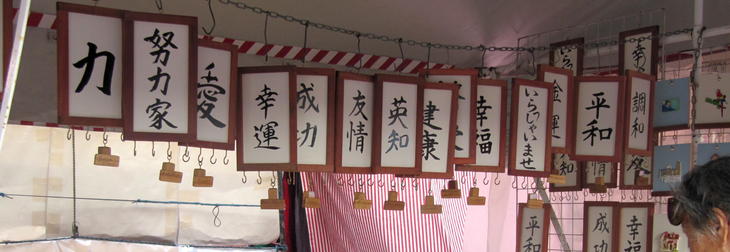 力
努力家
愛
幸運
成功
友情
英知
健康
幸福
いらっしゃいませ
金運
平和
調和
平和
成功
幸福